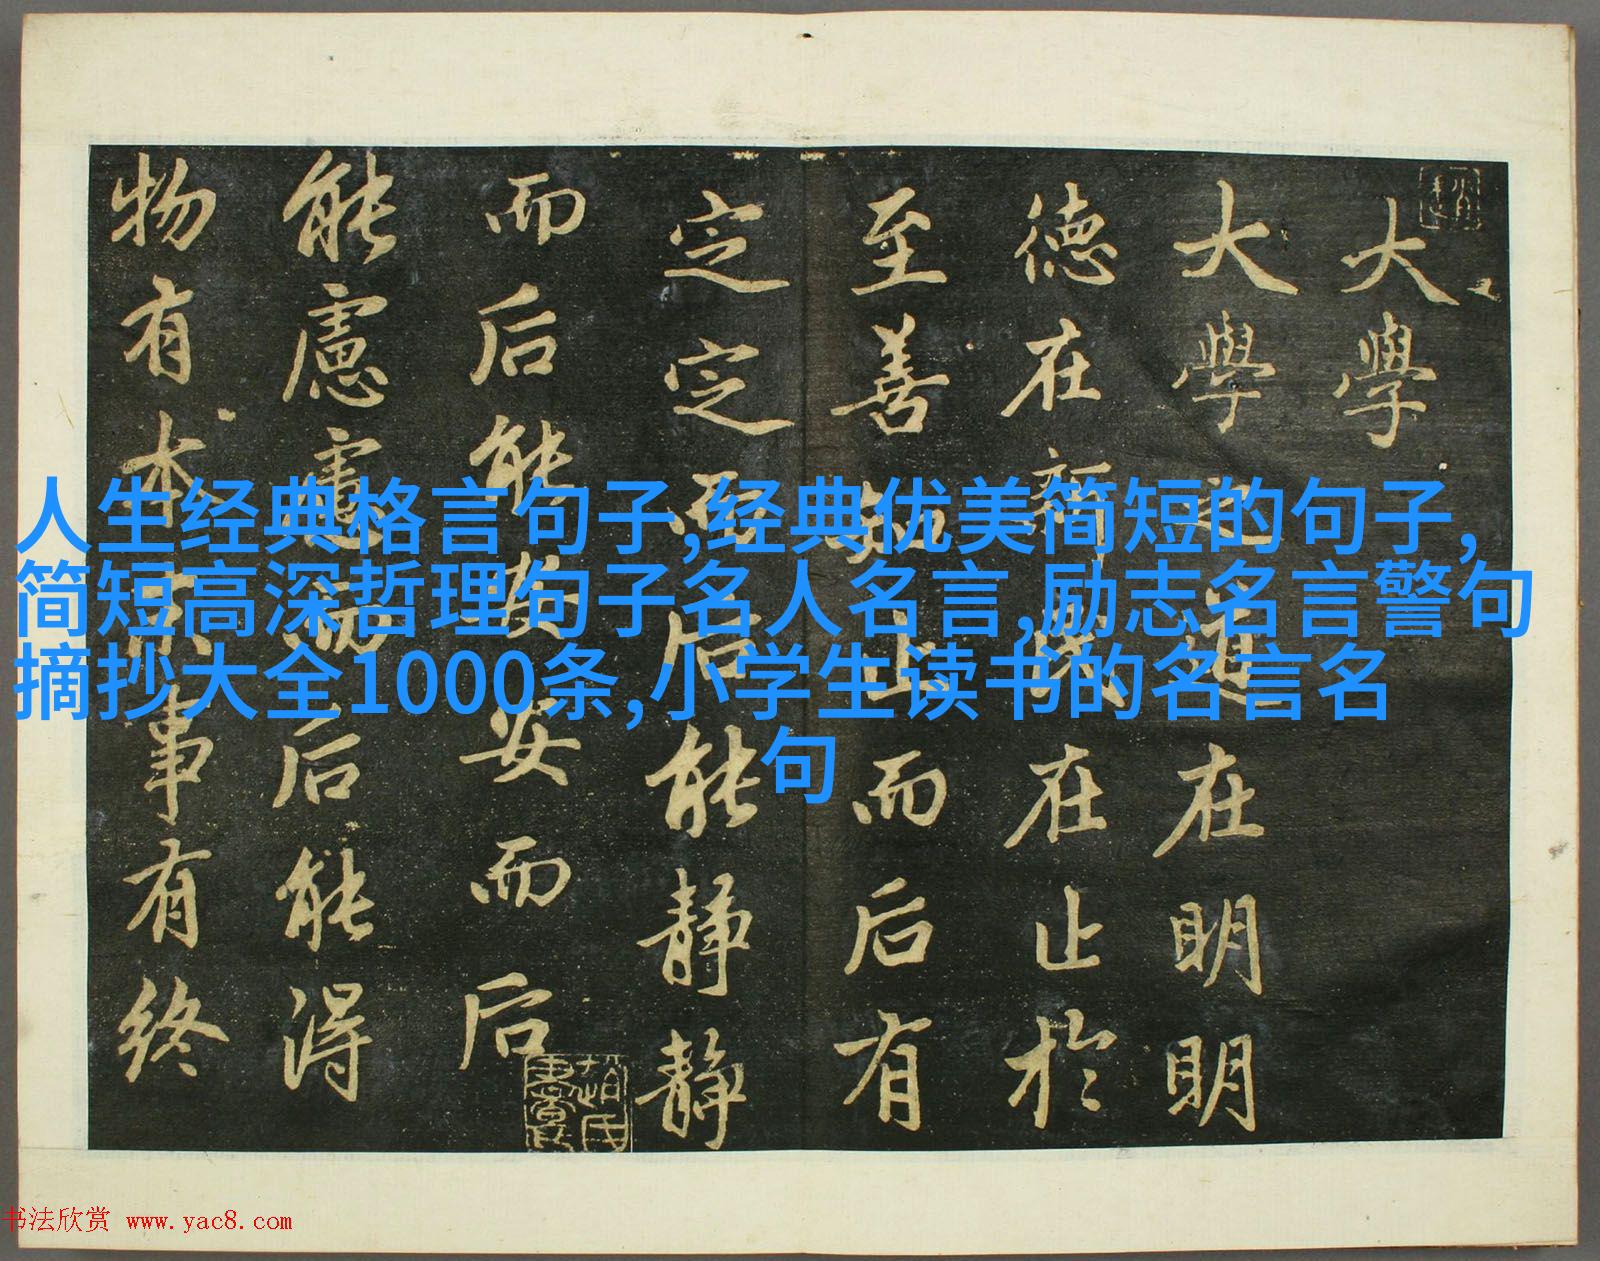 大學
大學之道在明明
德在新民在止於
至善知止而后有
定定而后能静静
而后能安安而后
能慮慮而后能得
物有本末事有終
人生经典格言句子,经典优美简短的句子,
简短高深哲理句子名人名言,励志名言警句
摘抄大全1000条,小学生读书的名言名
句
书法欣赏 www.yac8.com